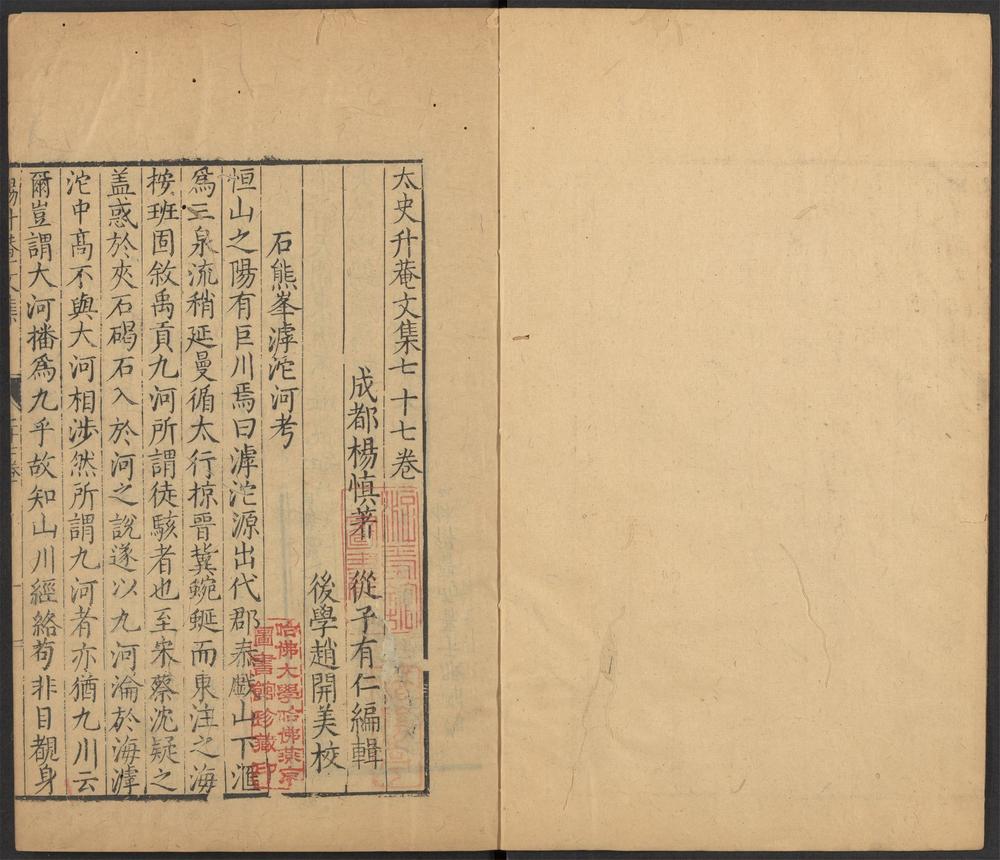 太史升菴文集七十七卷
成都楊慎著 從子有仁編輯
後學趙開美校
石熊峯滹沱河考
恒山之陽有巨川焉曰滹沱源出代郡泰戲山下滙
爲三泉流稍延曼循太行掠晉冀蜿蜒而東注之海
按班固敘禹貢九河所謂徒駭者也至宋蔡沈疑之
盖惑於夾石碣石入於河之說遂以九河淪於海滹
沱中高不與大河相涉然所謂九河者亦猶九川云
爾豈謂大河播爲九乎故知山川經絡苟非目覩身
哈佛大學哈佛燕京
圖書館珍藏印